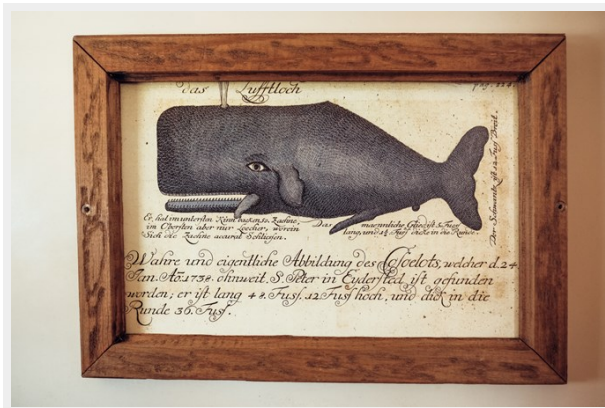 das Lufftloch
pag. 224
Er hat im untersten Kinn
in Obersten aber nur Löcher, worein
Sich die Zaehne accurat Schliessen.
Das maennliche Glied ist 5. Fuss
lang, und 1½ Fuss dicke in die Runde.
Der Schwantz ist 12 Fuss Breit.
Wahre und eigentliche Abbildung des Csoelots, welcher d. 24
Jan. Ao: 1734. ohnweit. S. Peter in Eydersted, ist gefunden
worden; er ist lang 44. Fuss. 12 Fuss hoch, und dick in die
Runde 36. Fuss.